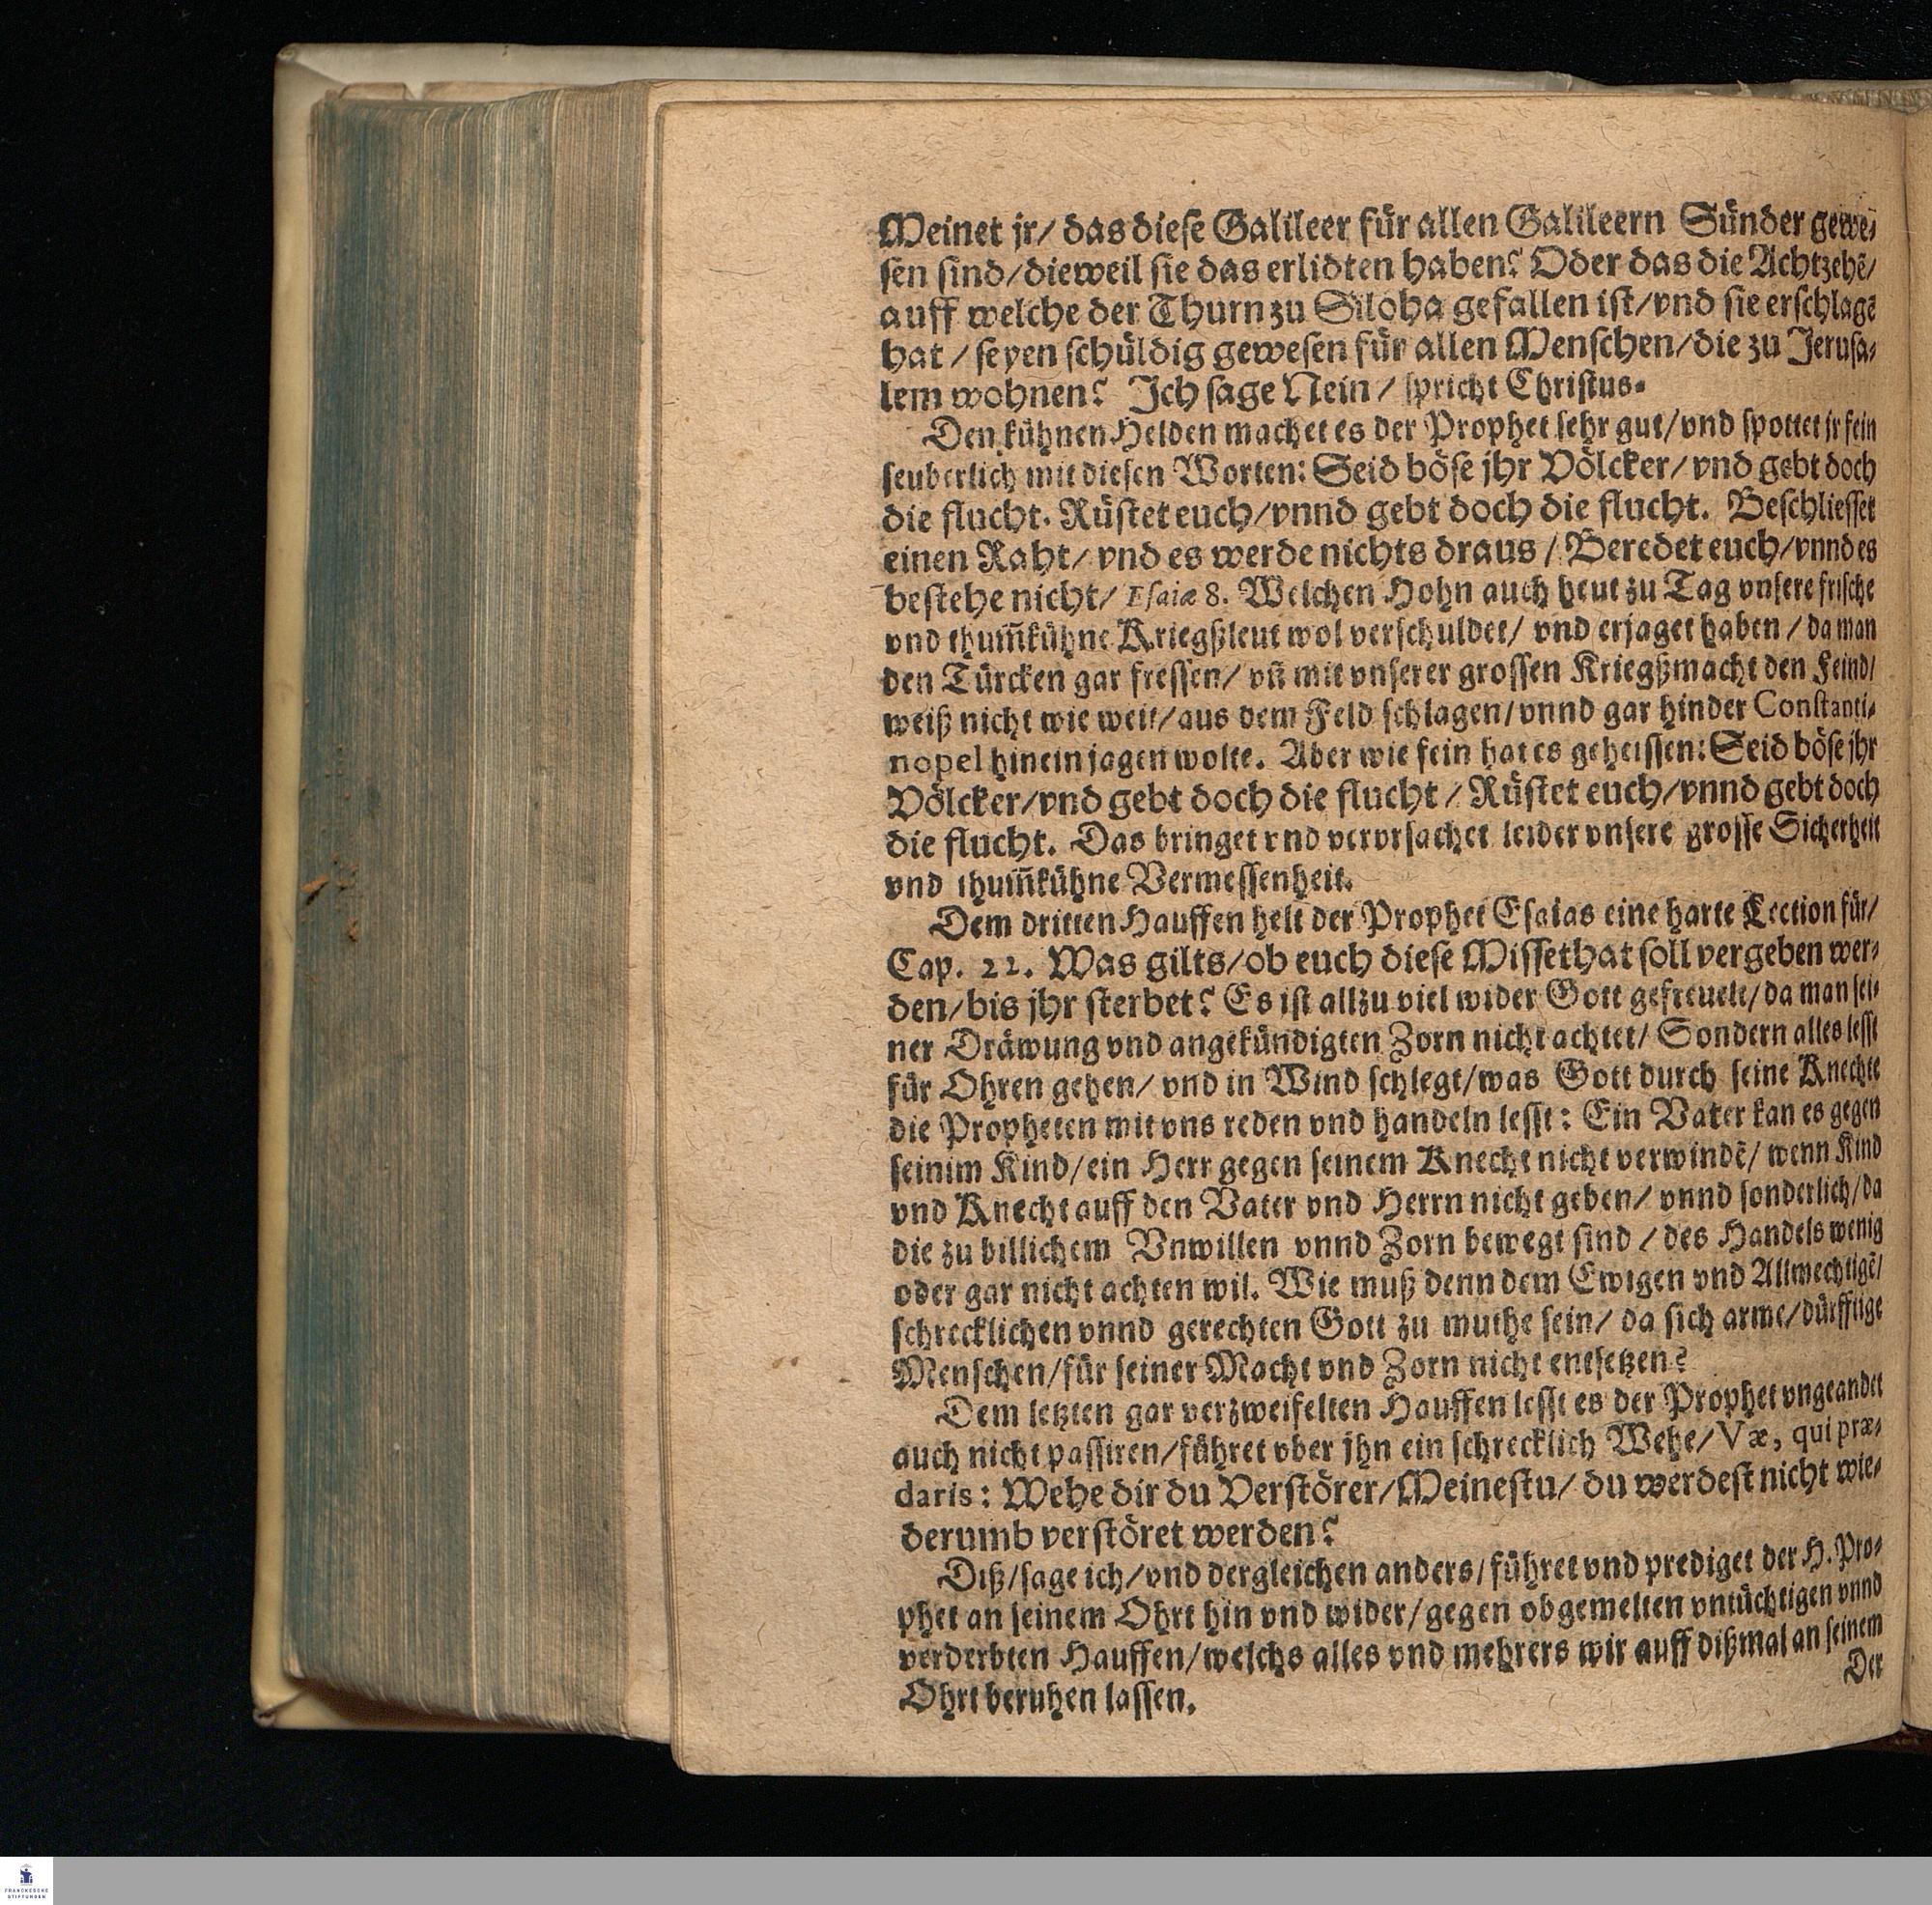 Meinet jr/ das diese Galileer für allen Galileern Sünder gewe-
sen sind/ dieweil sie das erlidten haben? Oder das die Achtzehē/
auff welche der Thurn zu Siloha gefallen ist/ vnd sie erschlagē
hat / seyen schüldig gewesen für allen Menschen/ die zu Jerusa-
lem wohnen? Ich sage Nein / spricht Christus.
Den kühnen Helden machet es der Prophet sehr gut/ vnd spottet jr fein
seuberlich mit diesen Worten: Seid böse jhr Völcker/ vnd gebt doch
die flucht. Rüstet euch/ vnnd gebt doch die flucht. Beschliesset
einen Raht/ vnd es werde nichts draus / Beredet euch/ vnnd es
bestehe nicht/ Esaiæ 8. Welchen Hohn auch heut zu Tag vnsere frische
vnd thum̃kühne Kriegßleut wol verschuldet/ vnd erjaget haben / da man
den Türcken gar fressen/ vñ mit vnserer grossen Kriegßmacht den Feind/
weiß nicht wie weit/ aus dem Feld schlagen/ vnnd gar hinder Constanti-
nopel hinein jagen wolte. Aber wie fein hat es geheissen: Seid böse jhr
Völcker/ vnd gebt doch die flucht / Rüstet euch/ vnnd gebt doch
die flucht. Das bringet vnd vervrsachet leider vnsere grosse Sicherheit
vnd thum̃kühne Vermessenheit.
Dem dritten Hauffen helt der Prophet Esaias eine harte Lection für/
Cap. 22. Was gilts/ ob euch diese Missethat soll vergeben wer-
den/ bis jhr sterbet? Es ist allzu viel wider Gott gefreuelt/ da man sei-
ner Dräwung vnd angekündigten Zorn nicht achtet/ Sondern alles lesst
für Ohren gehen/ vnd in Wind schlegt/ was Gott durch seine Knechte
die Propheten mit vns reden vnd handeln lesst: Ein Vater kan es gegen
seinim Kind/ ein Herr gegen seinem Knecht nicht verwindē/ wenn Kind
vnd Knecht auff den Vater vnd Herrn nicht geben/ vnnd sonderlich/ da
die zu billichem Vnwillen vnnd Zorn bewegt sind / des Handels wenig
oder gar nicht achten wil. Wie muß denn dem Ewigen vnd Allmechtigē/
schrecklichen vnnd gerechten Gott zu muthe sein/ da sich arme/ dürfftige
Menschen/ für seiner Macht vnd Zorn nicht entsetzen?
Dem letzten gar verzweifelten Hauffen lesst es der Prophet vngeandet
auch nicht passiren/ führet vber jhn ein schrecklich Wehe/ Væ, qui præ-
daris: Wehe dir du Verstörer/ Meinestu/ du werdest nicht wie-
derumb verstöret werden?
Diß/ sage ich/ vnd dergleichen anders/ führet vnd prediget der H. Pro-
phet an seinem Ohrt hin vnd wider/ gegen obgemelten vntüchtigen vnnd
verderbten Hauffen/ welchs alles vnd mehrers wir auff dißmal an seinem
Ohrt beruhen lassen.
Der
FRANCKESCHE
STIFTUNGEN